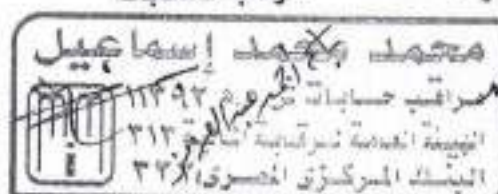 محمد محمد إسماعيل
مراقب حسابات ١١٣٩٢
الهيئة العامة للرقابة المالية ٣١٢
البنك المركزي المصري